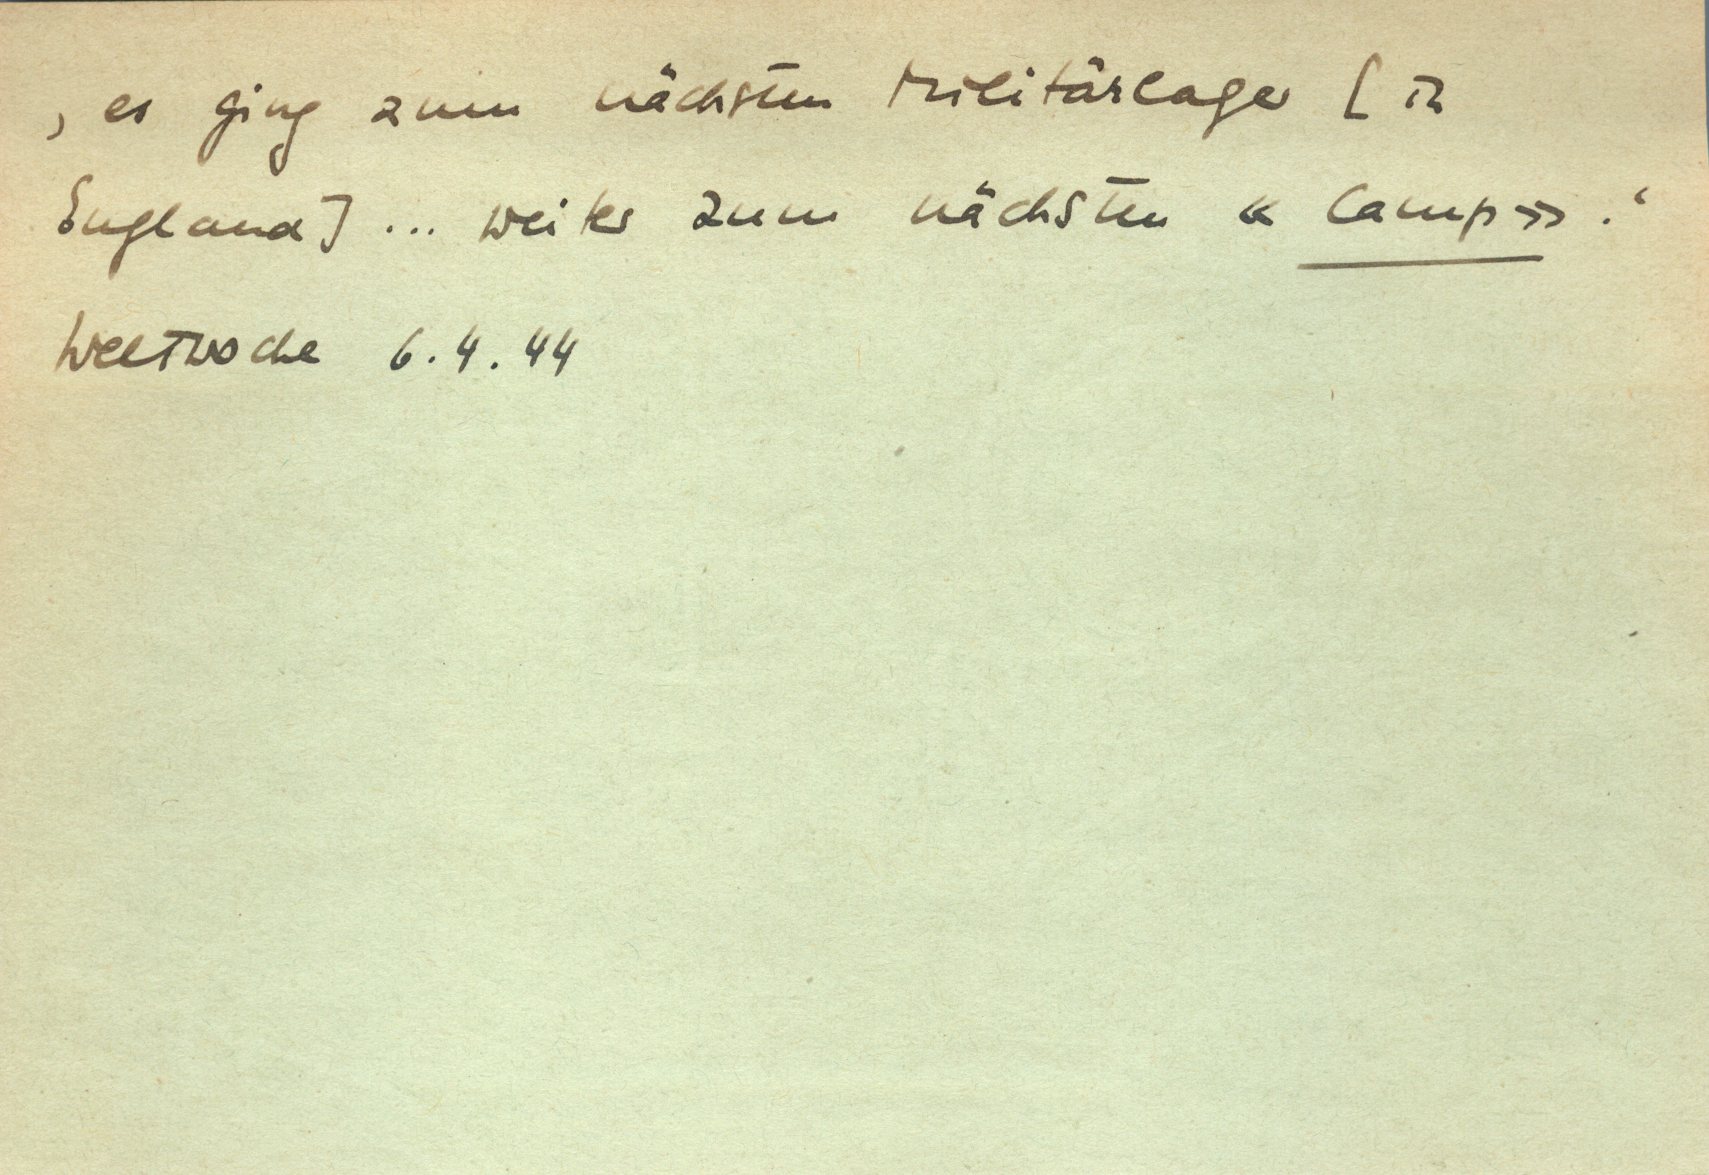 ‚es ging zum nächsten Militärlager [in
England] ... weiter zum nächsten «Camp».‘
Weltwoche 6.4.44